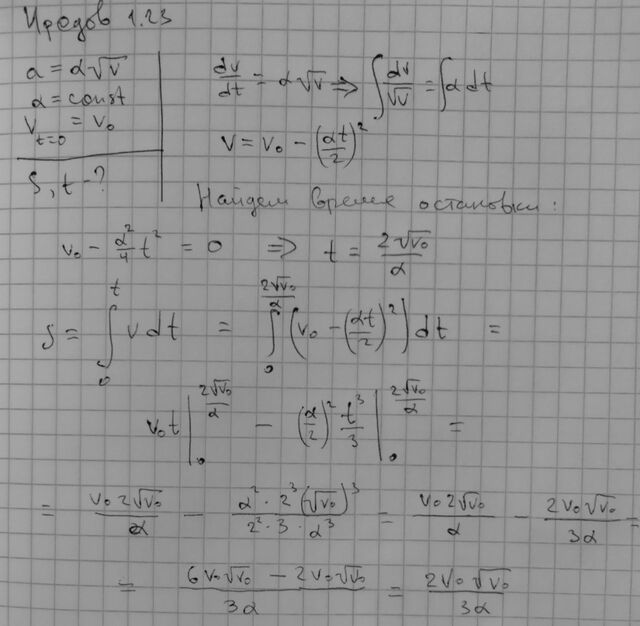 Иродов 1.23
a = α√v
α = const
v_{t=0} = v₀
S, t - ?
dv/dt = α√v ⇒ ∫ dv/√v = ∫ α dt
v = v₀ - (αt/2)²
Найдем время остановки:
v₀ - α²/4 t² = 0 ⇒ t = 2√v₀/α
S = ∫₀ᵗ v dt = ∫₀^{2√v₀/α} (v₀ - (αt/2)²) dt =
v₀t |₀^{2√v₀/α} - (α/2)² t³/3 |₀^{2√v₀/α} =
= v₀2√v₀/α - α² · 2³(√v₀)³/2² · 3 · α³ = v₀2√v₀/α - 2v₀√v₀/3α =
= 6v₀√v₀ - 2v₀√v₀/3α = 2v₀√v₀/3α